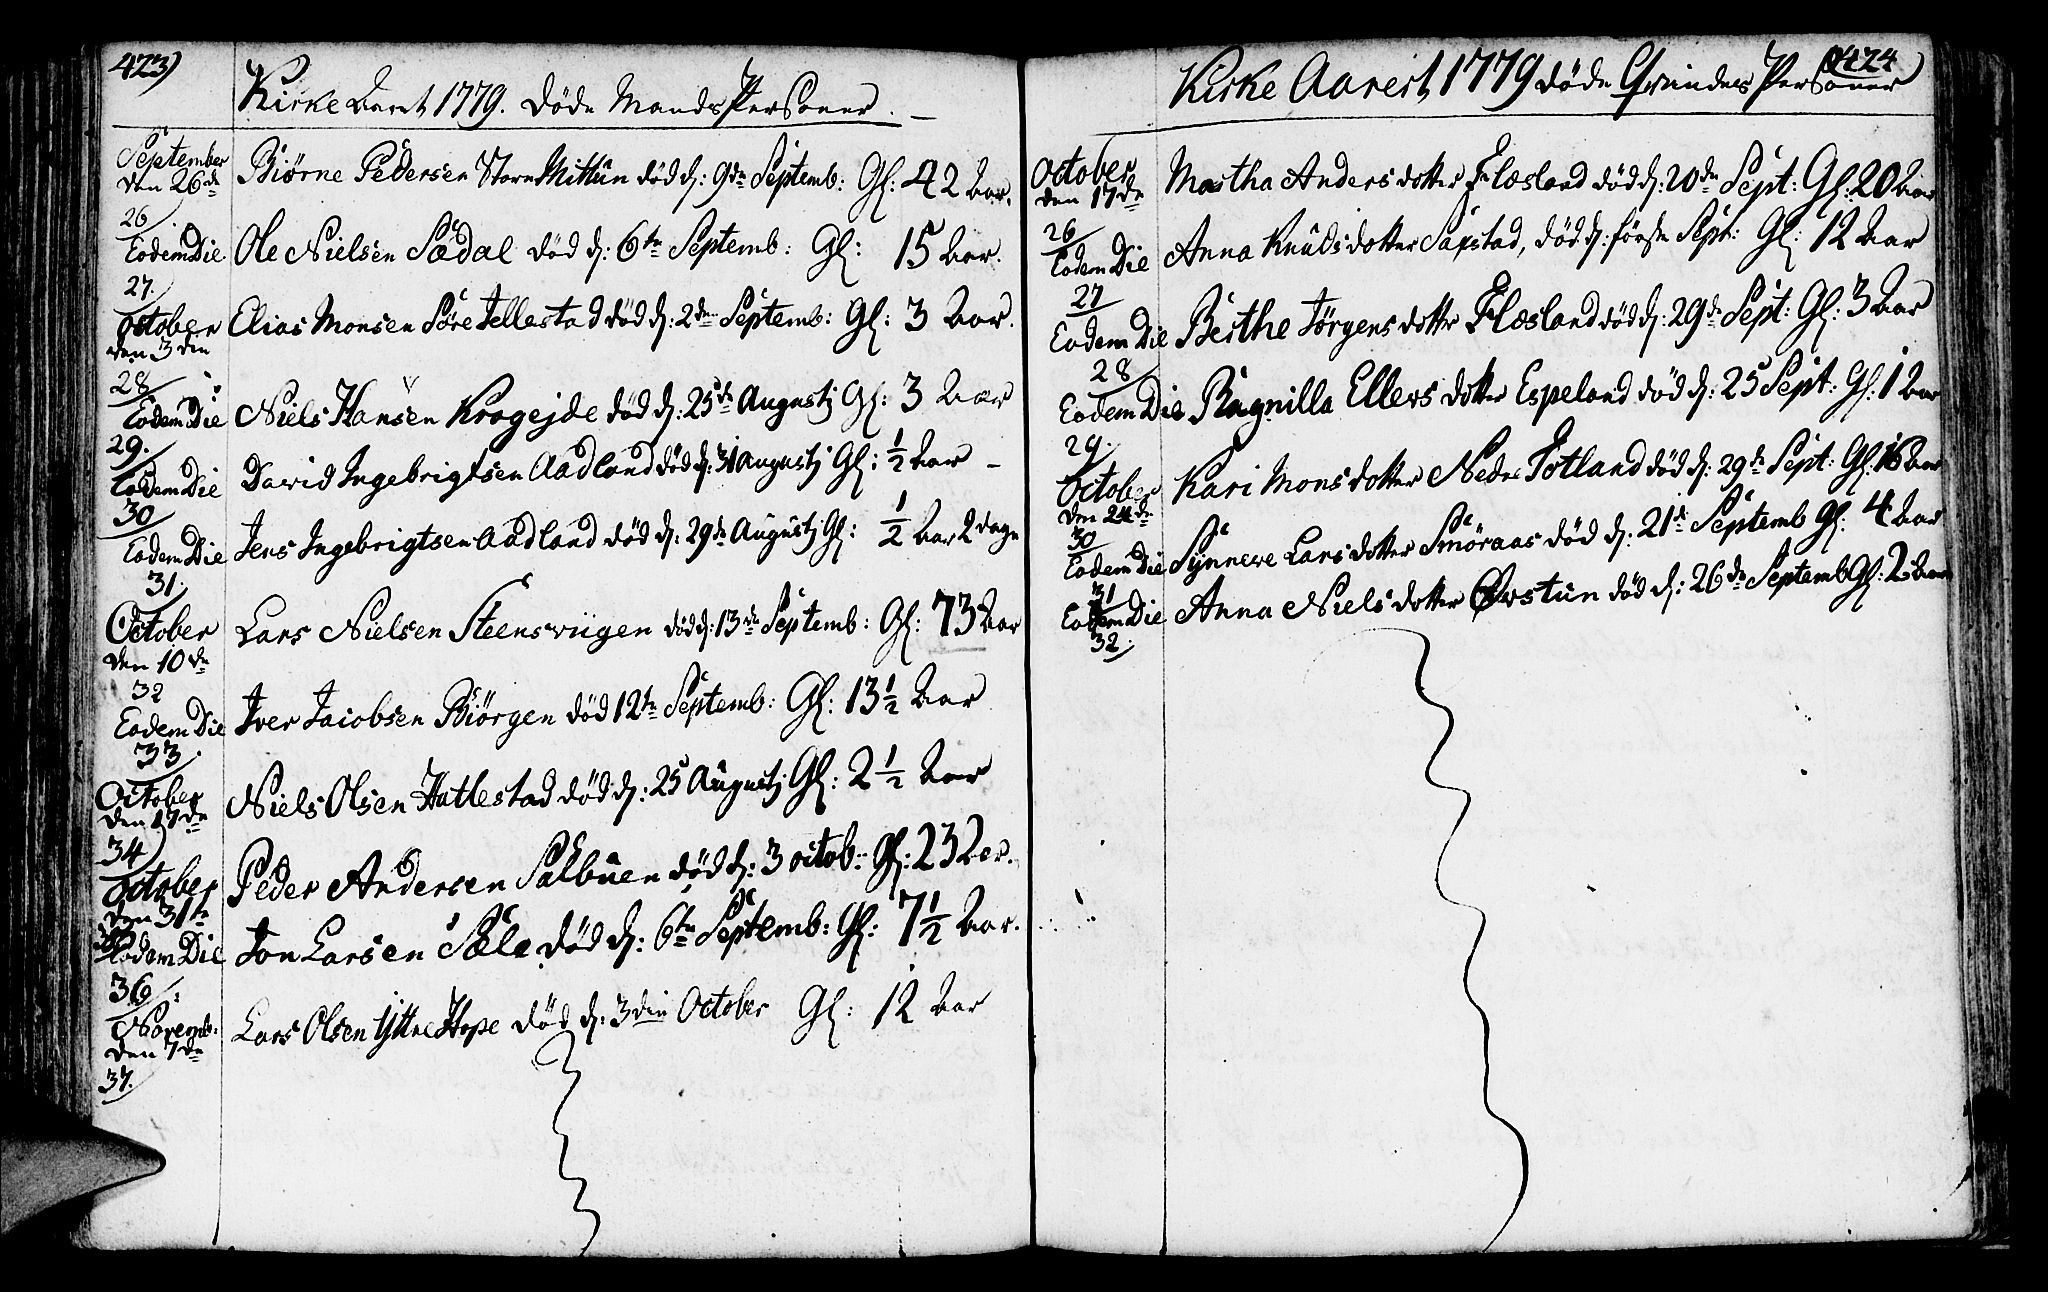 423)
Kirke Aaret 1779. Døde Mands Personer.
September
den 26de Biørne Pedersen Store Mittun død d: 9de Septemb: Gl: 42 Aar.
26
Eodem Die Ole Nielsen Sædal død d: 6te Septemb: Gl: 15 Aar.
27.
October Elias Monsen Søre Tellestad død d: 2den Septemb: Gl: 3 Aar.
den 3den
28
Eodem Die Niels Hansen Krogejde død d: 25de Augusti Gl: 3 Aar
29.
Eodem Die David Ingebrigtsen Aadland død d: 31 Augusti Gl: ½ Aar
30
Eodem Die Jens Ingebrigtsen Aadland død d: 29de Augusti Gl: ½ Aar 2 dage
31.
October Lars Nielsen Steensviigen død d: 13de Septemb: Gl: 73 Aar
den 10de
32
Eodem Die Iver Jacobsen Biørgen død 12te Septemb: Gl: 13½ Aar
33.
October Niels Olsen Hatlestad død d: 25 Augusti Gl: 2½ Aar
den 17de
34
October Peder Andersen Sælbuen død d: 3 octob: Gl: 23 Aar.
den 31te
Eodem Die Jon Larsen Sæle død d: 6te Septemb: Gl: 7½ Aar.
36
Novemb: Lars Olsen Yttre Hope død d: 3die October Gl: 12 Aar
den 7de
37.
424
Kirke Aaret 1779 døde Qvindes Personer
October Martha Anders dotter Flæsland død d: 20de Sept: Gl: 20 Aar
den 17de
26
Eodem Die Anna Knuds dotter Saxstad, død d: første Sept: Gl: 12 Aar
27
Eodem Die Berthe Jørgens dotter Flæsland død d: 29de Sept: Gl: 3 Aar
28
Eodem Die Ragnilla Ellers dotter Espeland død d: 25 Sept: Gl: 1 Aar
29.
October Kari Mons dotter Nedre Totland død d: 29de Sept: Gl: 16 Aar
den 24de
30
Eodem Die Synneve Lars dotter Smøraas død d: 21de Septemb Gl: 4 Aar
31
Eodem Die Anna Niels dotter Øvstun død d: 26de Septemb Gl: 2 Aar
32.